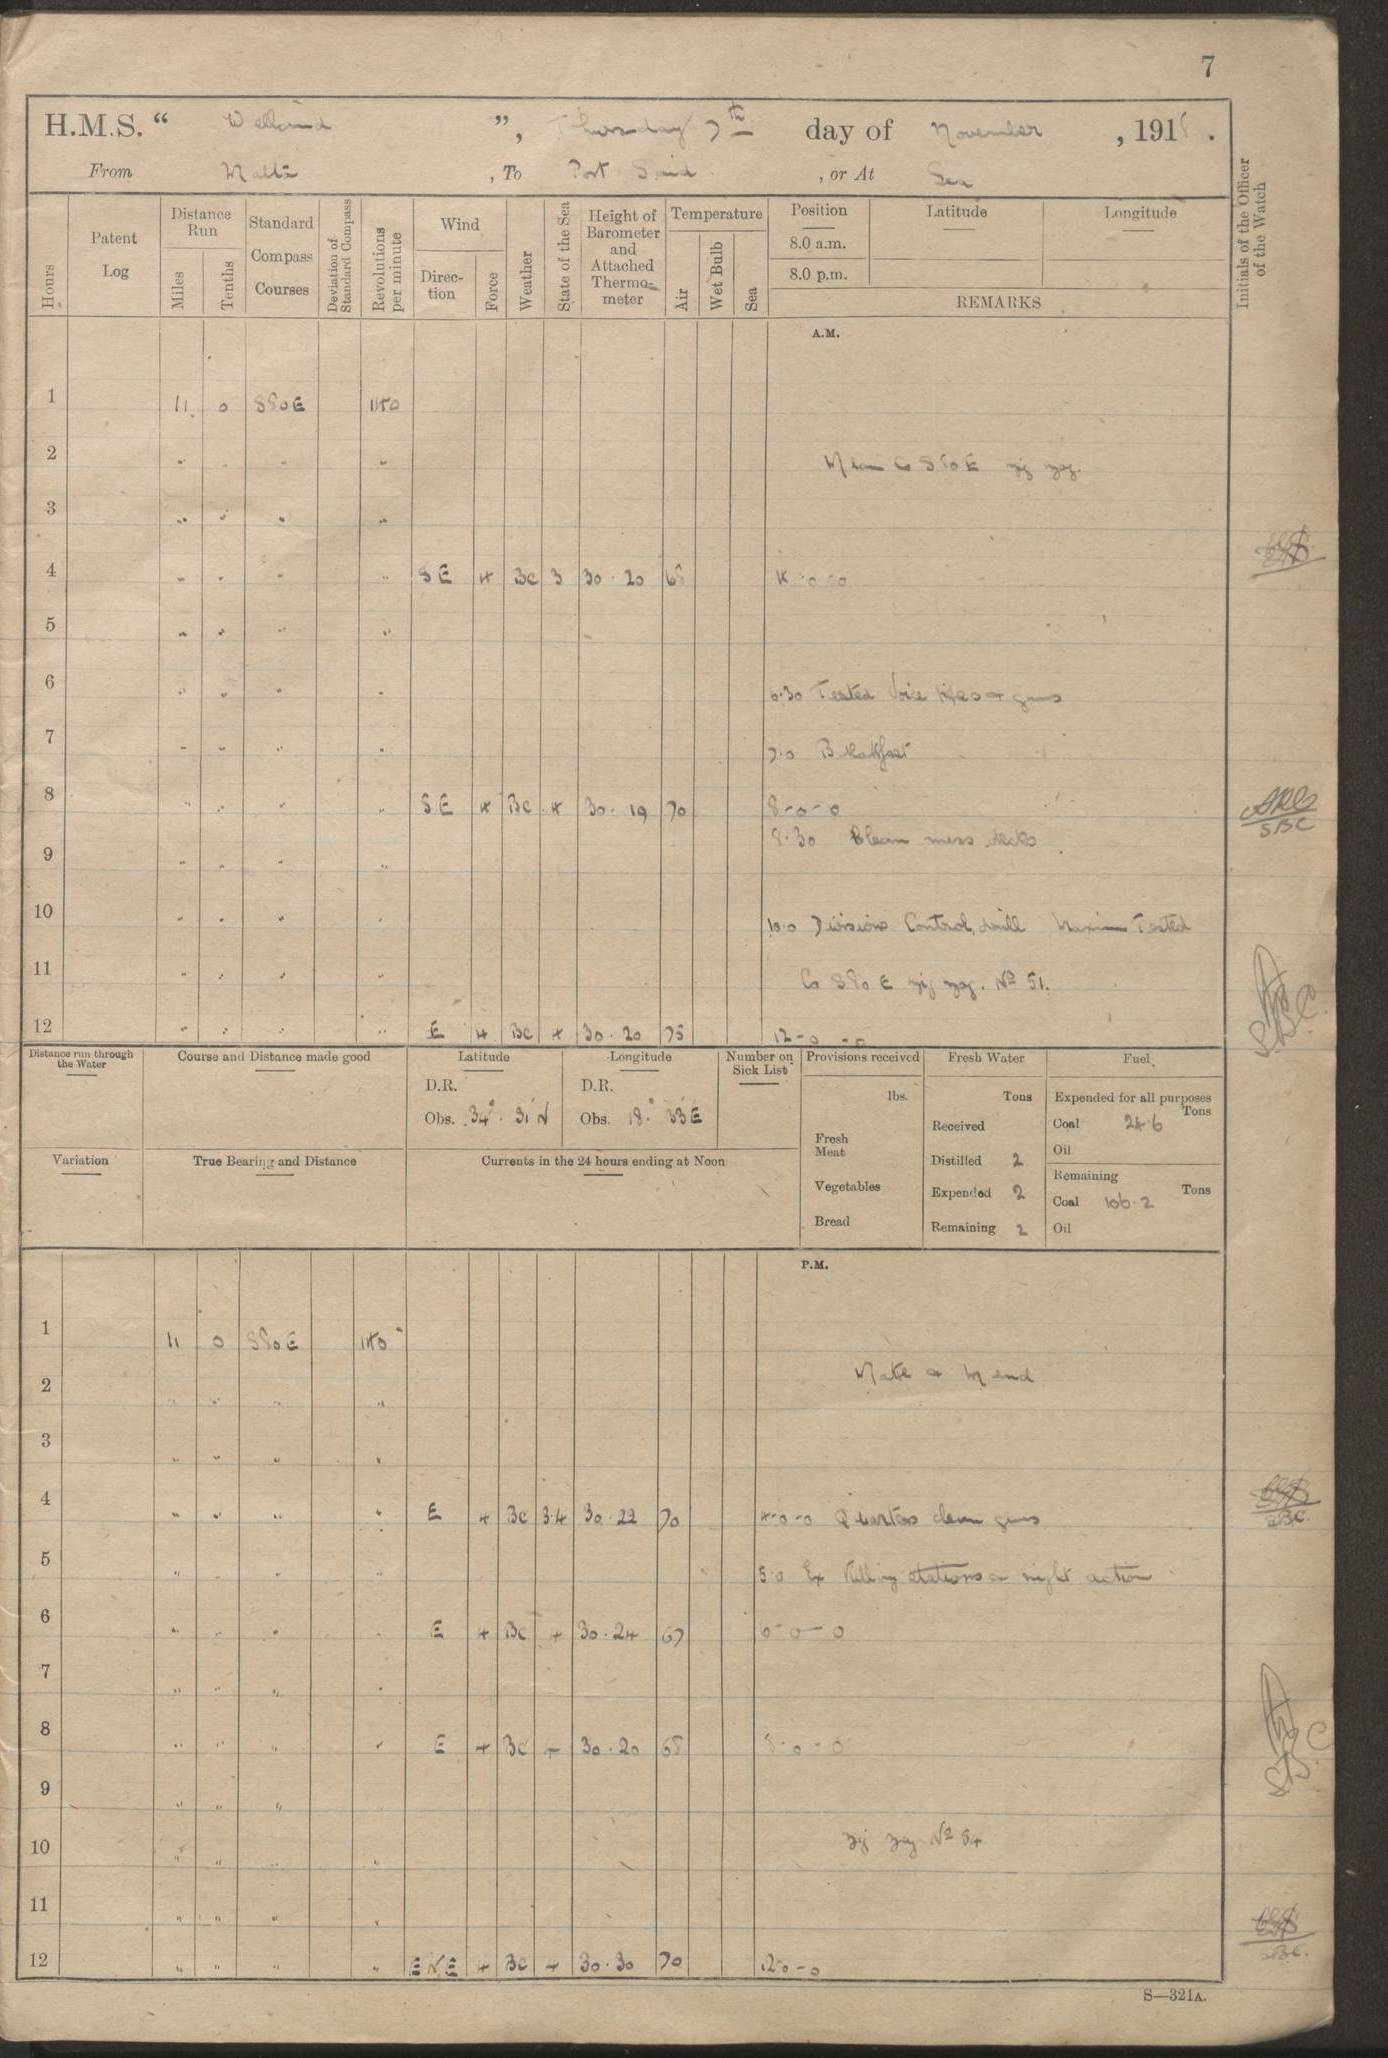 7
H.M.S. “ Welland ”, Thursday 7th day of November , 1918 .
From Malta , To Port Said , or At Sea
Hours
Patent Log
Distance Run
Miles
Tenths
Standard Compass Courses
Deviation of Standard Compass
Revolutions per minute
Wind
Direc-tion
Force
Weather
State of the Sea
Height of Barometer and Attached Thermo-meter
Temperature
Air
Wet Bulb
Sea
Position
8.0 a.m.
8.0 p.m.
Latitude
Longitude
REMARKS
Initials of the Officer of the Watch
A.M.
1 11 0 S80E 140
2 " " " " Mean Co S80E zig zag.
3 " " " "
4 " " " " SE 4 BC 3 30.20 68 4-0-0
5 " " " "
6 " " " " 6.30 Tested Voice pipes + guns
7 " " " " 7.0 Breakfast
8 " " " " SE 4 BC 4 30.19 70 8-0-0
8.30 Clean mess decks
SBC
9 " " " "
10 " " " " 10.0 Divisions Control drill Maxim Tested
11 " " " " Co S80E zig zag. No 51.
12 " " " " E 4 BC 4 30.20 75 12-0-0
Distance run through the Water
Course and Distance made good
Latitude
D.R.
Obs. 34° 31' N
Longitude
D.R.
Obs. 18° 33' E
Number on Sick List
Provisions received
lbs.
Fresh Meat
Vegetables
Bread
Fresh Water
Tons
Received
Distilled 2
Expended 2
Remaining 2
Fuel
Expended for all purposes
Tons
Coal 24.6
Oil
Remaining
Tons
Coal 106.2
Oil
Variation
True Bearing and Distance
Currents in the 24 hours ending at Noon
P.M.
1 11 0 S80E 140
2 " " " " Make + Mend
3 " " " "
4 " " " " E 4 BC 3.4 30.22 70 4-0-0 Quarters clean guns
SBC.
5 " " " " 5.0 Ex stations + night action
6 " " " " E 4 BC 4 30.24 67 6-0-0
7 " " " "
8 " " " " E 4 BC 4 30.20 68 8-0-0
9 " " "
10 " " " zig zag No 54
11 " " " "
12 " " " " ENE 4 BC 4 30.30 70 12-0-0
SBC.
S—321A.